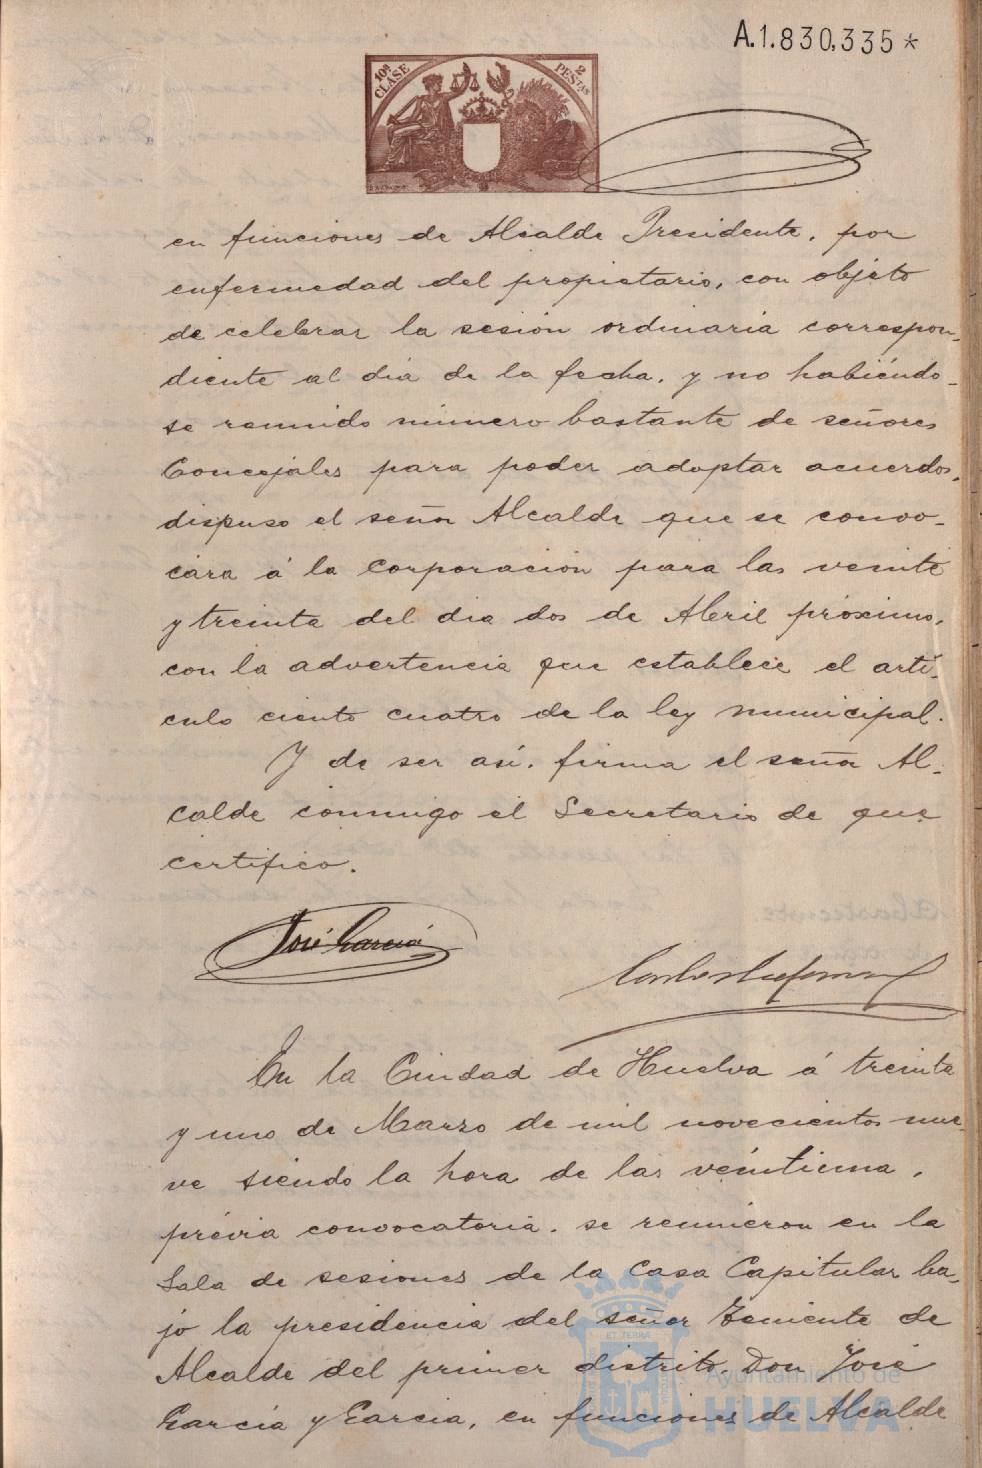 A.1.830,335*
10ª CLASE
2 PESTAS
en funciones de Alcalde Presidente, por
enfermedad del propietario, con objeto
de celebrar la sesión ordinaria correspon-
diente al día de la fecha, y no habiéndo-
se reunido número bastante de señores
Concejales para poder adoptar acuerdos,
dispuso el señor Alcalde que se convo-
cára á la Corporación para las veinte
y treinta del dia dos de Abril próximo,
con la advertencia que establece el artí-
culo ciento cuatro de la ley municipal.
Y de ser así, firma el señor Al-
calde conmigo el Secretario de que
certifico.
José García
En la Ciudad de Huelva á treinta
y uno de Marzo de mil novecientos nue-
ve siendo la hora de las veintiuna,
prévia convocatoria, se reunieron en la
Sala de sesiones de la Casa Capitular ba-
jo la presidencia del señor Teniente de
Alcalde del primer distrito, Don José
García y García, en funciones de Alcalde
ET TERRA
Ayuntamiento de
HUELVA